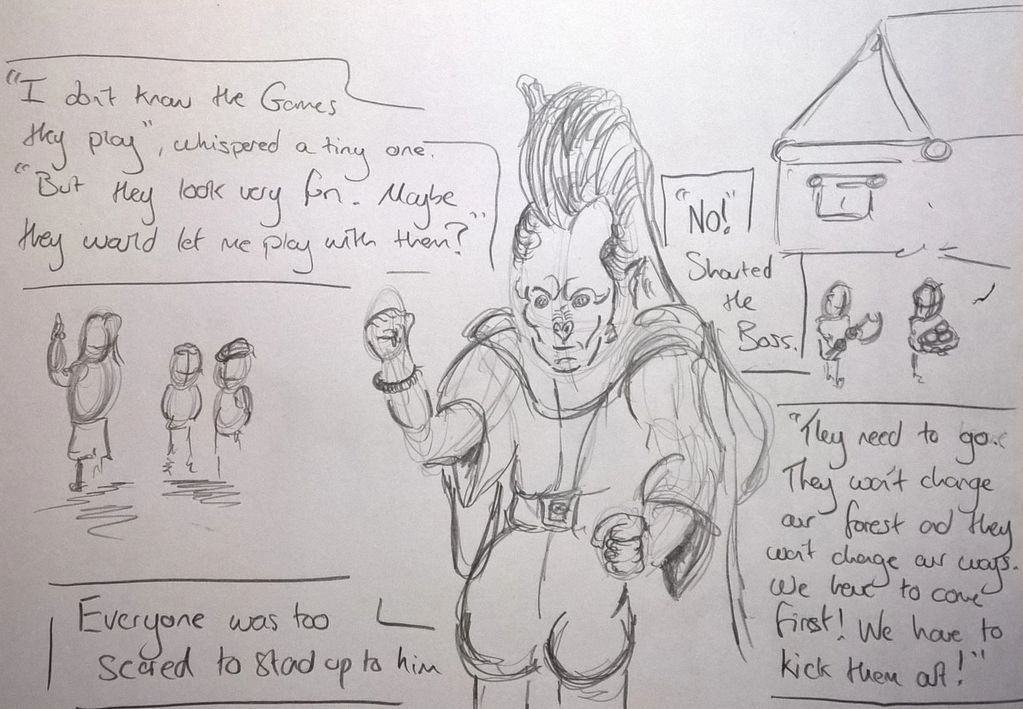 "I don't know the Games
they play", whispered a tiny one.
"But they look very fun. Maybe
they would let me play with them?"
"NO!"
Shouted
the
Boss.
"They need to go.
They won't change
our forest and they
won't change our ways.
We have to come
first! We have to
kick them out!"
Everyone was too
scared to stand up to him